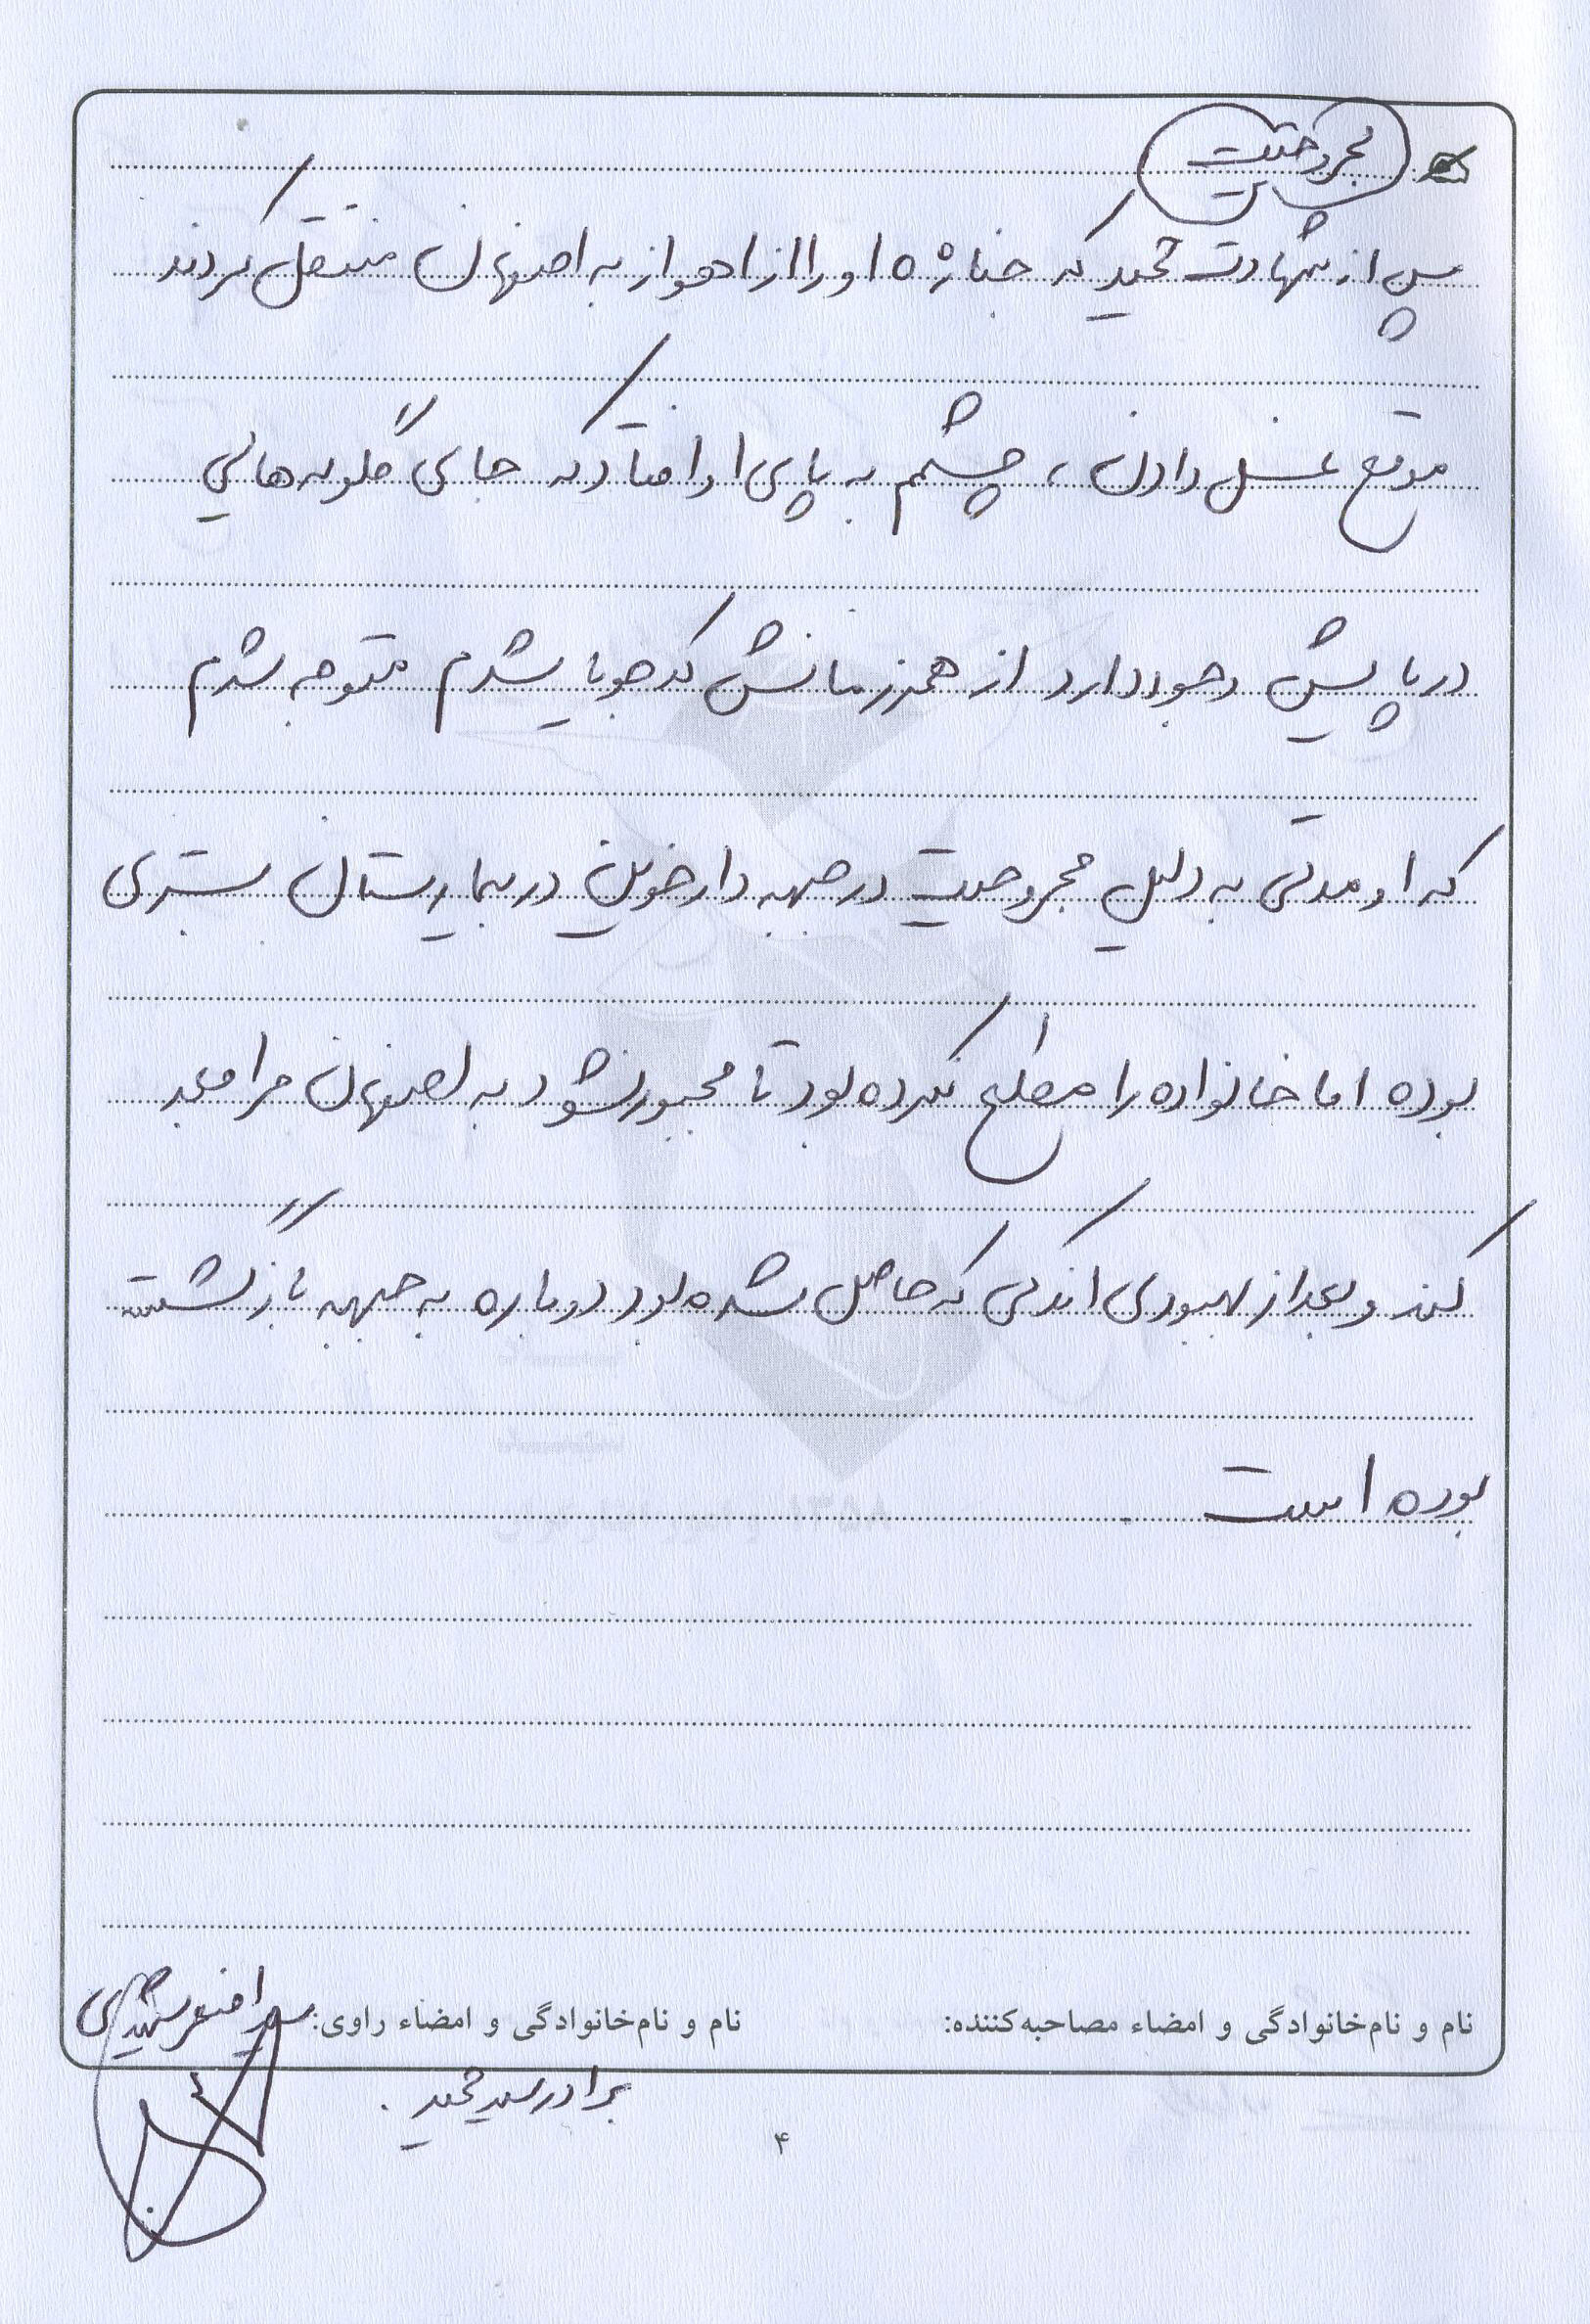 مجروحیت
پس از شهادت حمید که جنازه او را از اهواز به اصفهان منتقل کردند
موقع غسل دادن، چشم به پای او افتاد که جای گلوله‌هایی
در پایش وجود دارد از همرزمانش که جویا شدم متوجه شدم
که او مدتی به دلیل مجروحیت در جبهه دارخوین در بیمارستان بستری
بوده اما خانواده را مطلع نکرده بود تا مجبور نشود به اصفهان مراجعه
کند و بعد از بهبودی اندکی که حاصل شده بود دوباره به جبهه بازگشته
بوده است
نام و نام‌خانوادگی و امضاء مصاحبه‌کننده: نام و نام‌خانوادگی و امضاء راوی: سید
برادر سید حمید.
۴